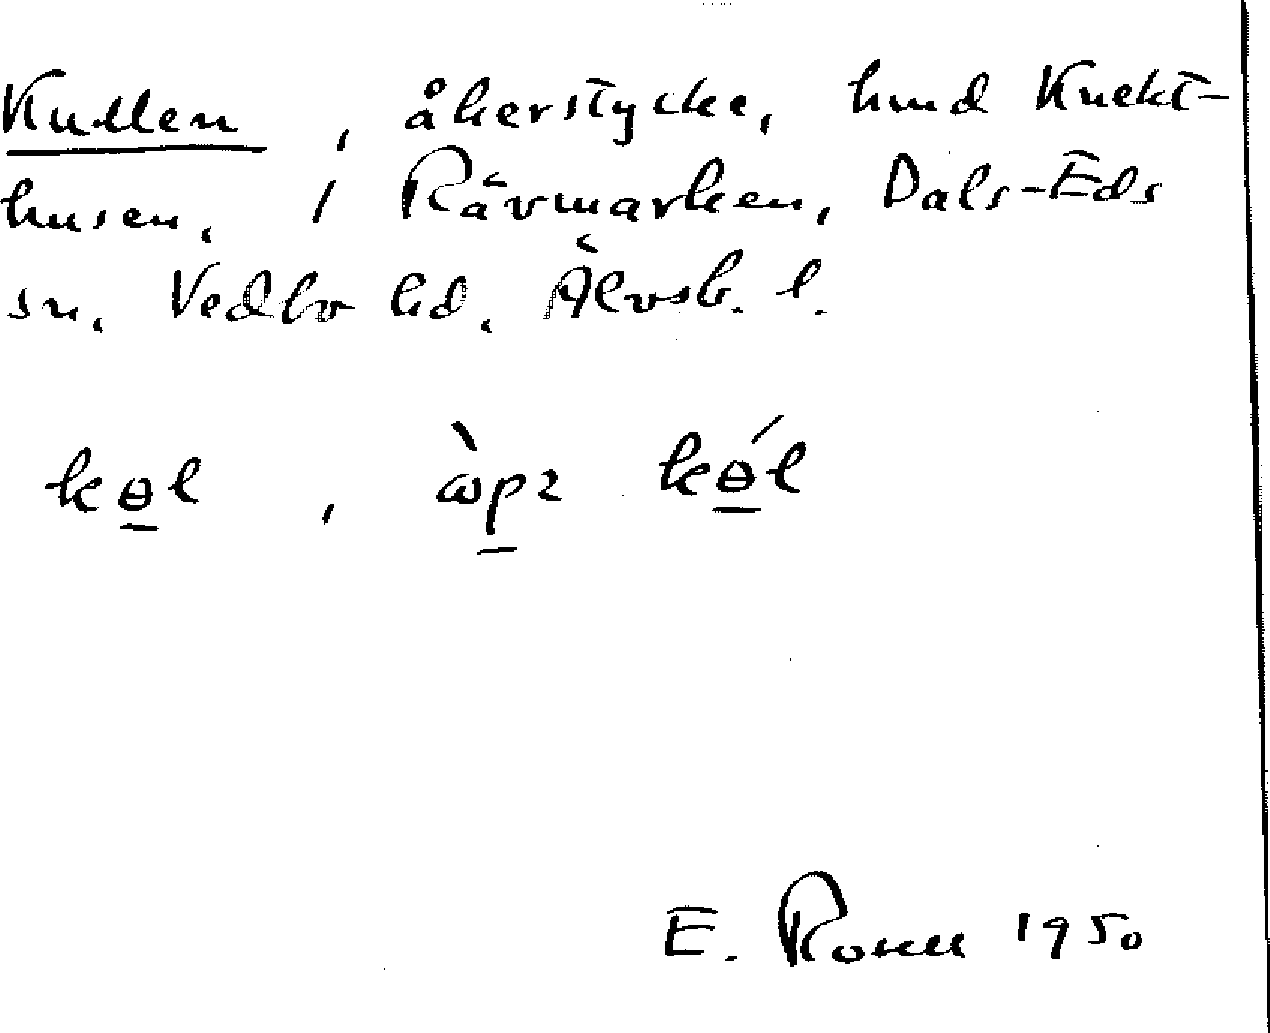 Kullen, åkerstycke, hmd Knekt-
husen, i Rävmarken, Dals-Eds
sn, Vedbo hd, Älvsb. l.
kɵl, ὼpɿ kɵ́l
E. Rosell 1950